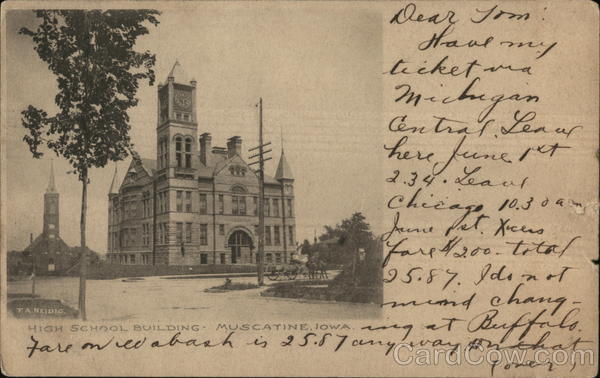 Dear Tom:
Have my
ticket via
Michigan
Central. Leave
here June 1st
2.34. Leave
Chicago 10.30 am
June 1st. Xcess
fare $2.00. total
25.87. I do not
mind chang-
ing at Buffalo.
Fare on Wabash is 25.87 any way so that
(over)
F.A. NEIDIG.
HIGH SCHOOL BUILDING - MUSCATINE, IOWA.
CardCow.com